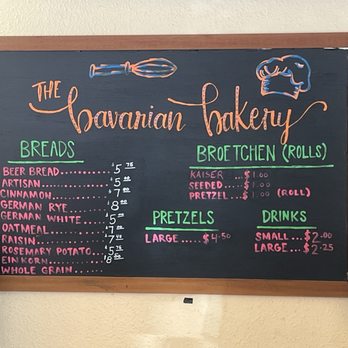 THE
bavarian bakery
BREADS
BEER BREAD.......... $5 75
ARTISAN............
CINNAMON..........
GERMAN RYE........ $8
GERMAN WHITE..... $5
OATMEAL..........
RAISIN............
ROSEMARY POTATO..
EINKORN........... $8
WHOLE GRAIN.......
BROETCHEN (ROLLS)
KAISER ....$1.00
SEEDED.....$1.00
PRETZEL ...$1.00 (ROLL)
PRETZELS
LARGE .....$4.50
DRINKS
SMALL ....$2.00
LARGE ....$2.25